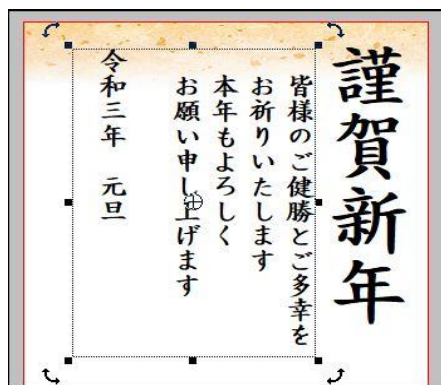 謹賀新年
皆様のご健勝とご多幸を
お祈りいたします
本年もよろしく
お願い申し上げます
令和三年　元旦